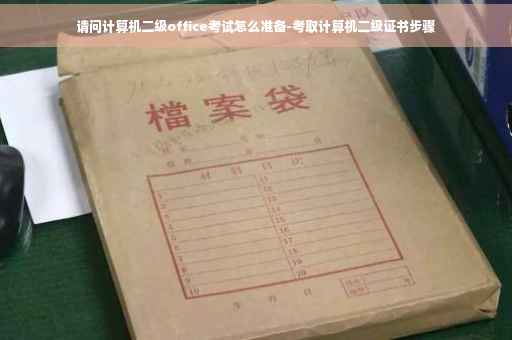 请问计算机二级office考试怎么准备-考取计算机二级证书步骤
檔案袋
材料目次
1 11
2 12
3 13
4 14
5 15
6 16
7 17
8 18
9 19
10 20
年 月 日